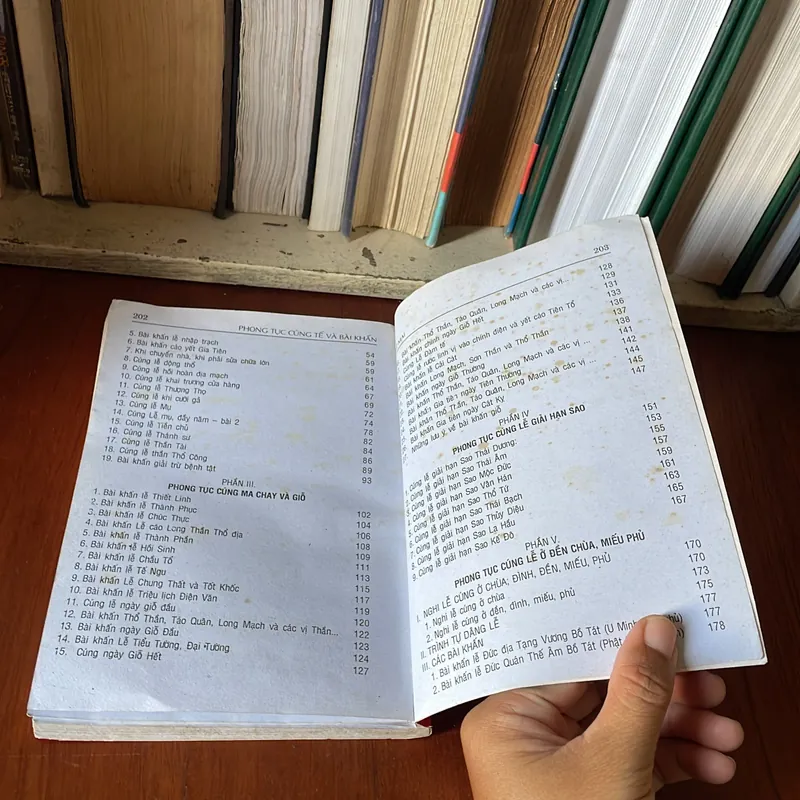 202
PHONG TỤC CÚNG TẾ VÀ BÀI KHẤN
5. Bài khấn lễ nhập trạch 54
6. Bài khấn cáo yết Gia Tiên 57
7. Khi chuyển nhà, khi phải sửa chữa lớn 59
8. Cúng lễ động thổ 59
9. Cúng lễ hồi hoàn địa mạch 61
10. Cúng lễ khai trương cửa hàng 64
11. Cúng lễ Thượng Thọ 67
12. Cúng lễ khi cưới gả 69
13. Cúng lễ Mụ 72
14. Cúng lễ mụ, đầy năm – bài 2 74
15. Cúng lễ Tiên chủ 78
16. Cúng lễ Thành sư 82
17. Cúng lễ Thần Tài 84
18. Cúng lễ thần Thổ Công 86
19. Bài khấn giải trừ bệnh tật 89
93
PHẦN III.
PHONG TỤC CÚNG MA CHAY VÀ GIỖ
1. Bài khấn lễ Thiết Linh 102
2. Bài khấn lễ Thành Phục 104
3. Bài khấn lễ Chúc Thực 106
4. Bài khấn Lễ cáo Long Thần Thổ địa 108
5. Bài khấn lễ Thành Phần 110
6. Bài khấn lễ Hồi Sinh 111
7. Bài khấn lễ Chầu Tổ 113
8. Bài khấn lễ Tế Ngu 115
9. Bài khấn Lễ Chung Thất và Tốt Khốc 117
10. Bài khấn lễ Triệu lịch Điện Văn 119
11. Cúng lễ ngày giỗ đầu 120
12. Bài khấn Thổ Thần, Táo Quân, Long Mạch và các vị Thần... 122
13. Bài khấn ngày Giỗ Đầu 123
14. Bài khấn Lễ Tiểu Tường, Đại Tường 124
15. Cúng ngày Giỗ Hết 127
203
Bài khấn Thổ Thần, Táo Quân, Long Mạch và các vị... 128
Bài khấn chính ngày Giỗ Hết 129
Cúng Lễ Đàm tế 131
Cúng lễ rước linh vị vào chính điện và yết cáo Tiên Tổ 133
Bài khấn lễ Cải Cát 136
Bài khấn Long Mạch, Sơn Thần và Thổ Thần 137
Bài khấn ngày Giỗ Thường 138
Bài khấn Thổ Thần, Táo Quân, Long Mạch và các vị ... 141
Bài khấn Gia tiên ngày Tiên Thường 142
Bài khấn Thổ Thần, Táo Quân, Long Mạch và các vị ... 144
Bài khấn Gia tiên ngày Cát Kỵ 145
Những lưu ý về bài khấn giỗ 147
PHẦN IV
PHONG TỤC CÚNG LỄ GIẢI HẠN SAO
1. Cúng lễ giải hạn Sao Thái Dương: 151
Cúng lễ giải hạn Sao Thái Âm 153
Cúng lễ giải hạn Sao Mộc Đức 155
Cúng lễ giải hạn Sao Vân Hán 157
Cúng lễ giải hạn Sao Thổ Tú 159
Cúng lễ giải hạn Sao Thái Bạch 161
7. Cúng lễ giải hạn Sao Thủy Diệu 163
8. Cúng lễ giải hạn Sao La Hầu 165
9. Cúng lễ giải hạn Sao Kế Đô 167
PHẦN V.
PHONG TỤC CÚNG LỄ Ở ĐỀN CHÙA, MIẾU PHỦ 170
I. NGHI LỄ CÚNG Ở CHÙA, ĐÌNH, ĐỀN, MIẾU, PHỦ 170
1. Nghi lễ cúng ở chùa 173
2. Nghi lễ cúng ở đền, đình, miếu, phủ 175
II. TRÌNH TỰ DÂNG LỄ 177
III. CÁC BÀI KHẤN 177
1. Bài khấn lễ Đức địa Tạng Vương Bồ Tát (U Minh
2. Bài khấn lễ Đức Quán Thế Âm Bồ Tát (Phật 178